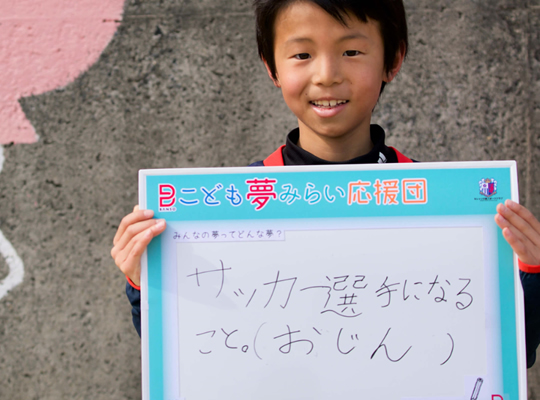 こども夢みらい応援団
みんなの夢ってどんな夢？
サッカー選手になる
こと。（おじん）